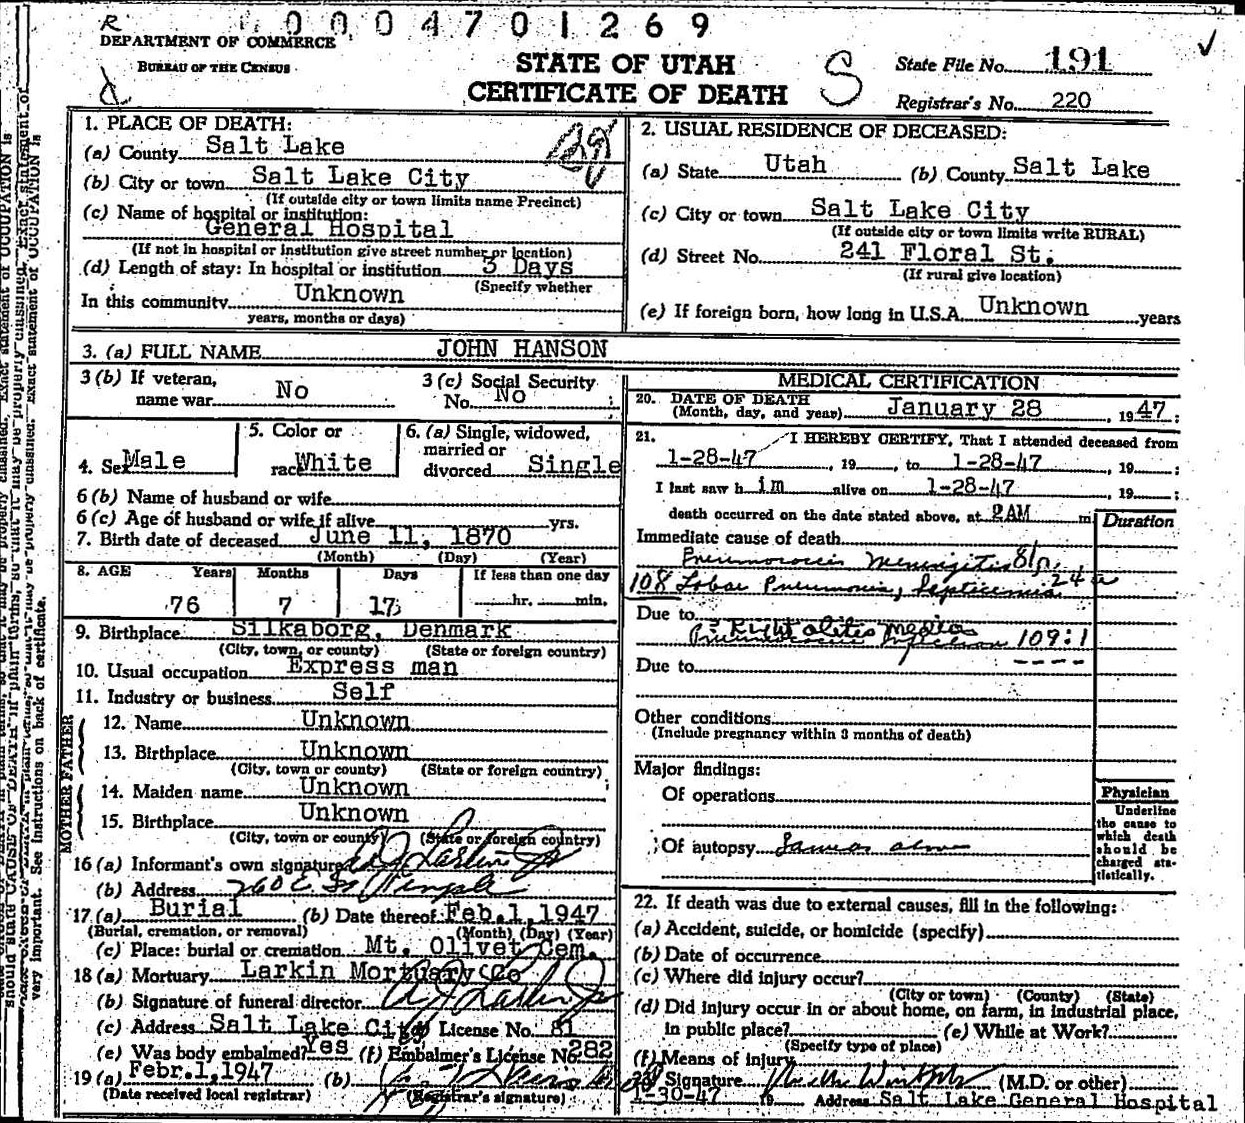 R 0004701269
DEPARTMENT OF COMMERCE
BUREAU OF THE CENSUS
STATE OF UTAH
CERTIFICATE OF DEATH
S
State File No. 191
Registrar's No. 220
1. PLACE OF DEATH:
(a) County Salt Lake
(b) City or town Salt Lake City
(If outside city or town limits name Precinct)
(c) Name of hospital or institution:
General Hospital
(If not in hospital or institution give street number or location)
(d) Length of stay: In hospital or institution 3 Days
(Specify whether
In this community Unknown
years, months or days)
2. USUAL RESIDENCE OF DECEASED:
(a) State Utah (b) County Salt Lake
(c) City or town Salt Lake City
(If outside city or town limits write RURAL)
(d) Street No. 241 Floral St.
(If rural give location)
(e) If foreign born, how long in U.S.A. Unknown years
3. (a) FULL NAME JOHN HANSON
3 (b) If veteran, name war No
3 (c) Social Security No. No
4. Sex Male
5. Color or race White
6. (a) Single, widowed, married or divorced Single
6 (b) Name of husband or wife
6 (c) Age of husband or wife if alive yrs.
7. Birth date of deceased June 11, 1870
(Month) (Day) (Year)
8. AGE Years Months Days If less than one day
76 7 17 hr. min.
9. Birthplace Silkaborg, Denmark
(City, town, or county) (State or foreign country)
10. Usual occupation Express man
11. Industry or business Self
FATHER
12. Name Unknown
13. Birthplace Unknown
(City, town or county) (State or foreign country)
MOTHER
14. Maiden name Unknown
15. Birthplace Unknown
(City, town or county) (State or foreign country)
16 (a) Informant's own signature A J Larkin Jr
(b) Address 260 E. So Temple
17 (a) Burial (b) Date thereof Feb. 1, 1947
(Burial, cremation, or removal) (Month) (Day) (Year)
(c) Place: burial or cremation Mt. Olivet Cem.
18 (a) Mortuary Larkin Mortuary Co
(b) Signature of funeral director A J Larkin Jr
(c) Address Salt Lake City License No. 81
(e) Was body embalmed? Yes (f) Embalmer's License No. 282
19 (a) Febr. 1, 1947 (b)
(Date received local registrar) (Registrar's signature)
MEDICAL CERTIFICATION
20. DATE OF DEATH
(Month, day, and year) January 28, 1947:
21. I HEREBY CERTIFY, That I attended deceased from
1-28-47, 19 , to 1-28-47, 19 ;
I last saw him alive on 1-28-47, 19 ;
death occurred on the date stated above, at 2AM m
Duration
Immediate cause of death
Pneumococcic Meningitis
108 Lobar Pneumonia, Septicemia 24a
Due to Right otitis media
Pneumococcic Infection 109:1
Due to
Other conditions
(Include pregnancy within 3 months of death)
Major findings:
Of operations
Of autopsy Same as above
Physician
Underline the cause to which death should be charged statistically.
22. If death was due to external causes, fill in the following:
(a) Accident, suicide, or homicide (specify)
(b) Date of occurrence
(c) Where did injury occur?
(City or town) (County) (State)
(d) Did injury occur in or about home, on farm, in industrial place,
in public place? (e) While at Work?
(Specify type of place)
(f) Means of injury
Signature (M.D. or other)
1-30-47 19 Address Salt Lake General Hospital
very important. See instructions on back of certificate.